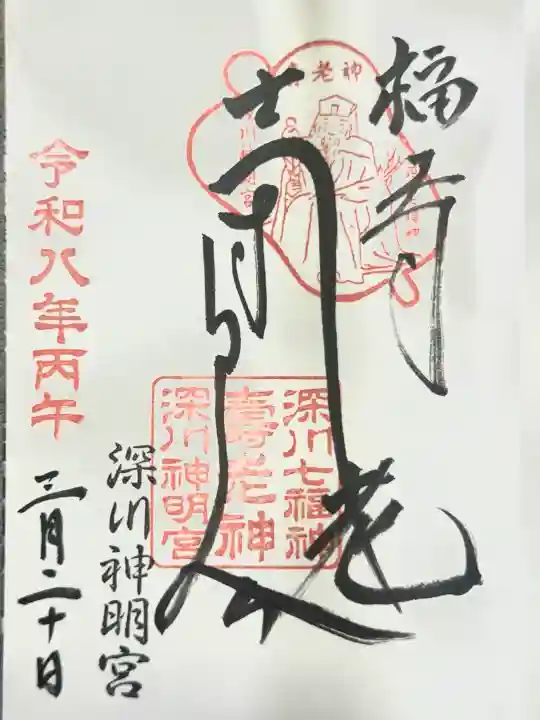 福寿
老
壽老神
深川七福神
壽老神
深川神明宮
深川神明宮
令和八年丙午
三月二十日